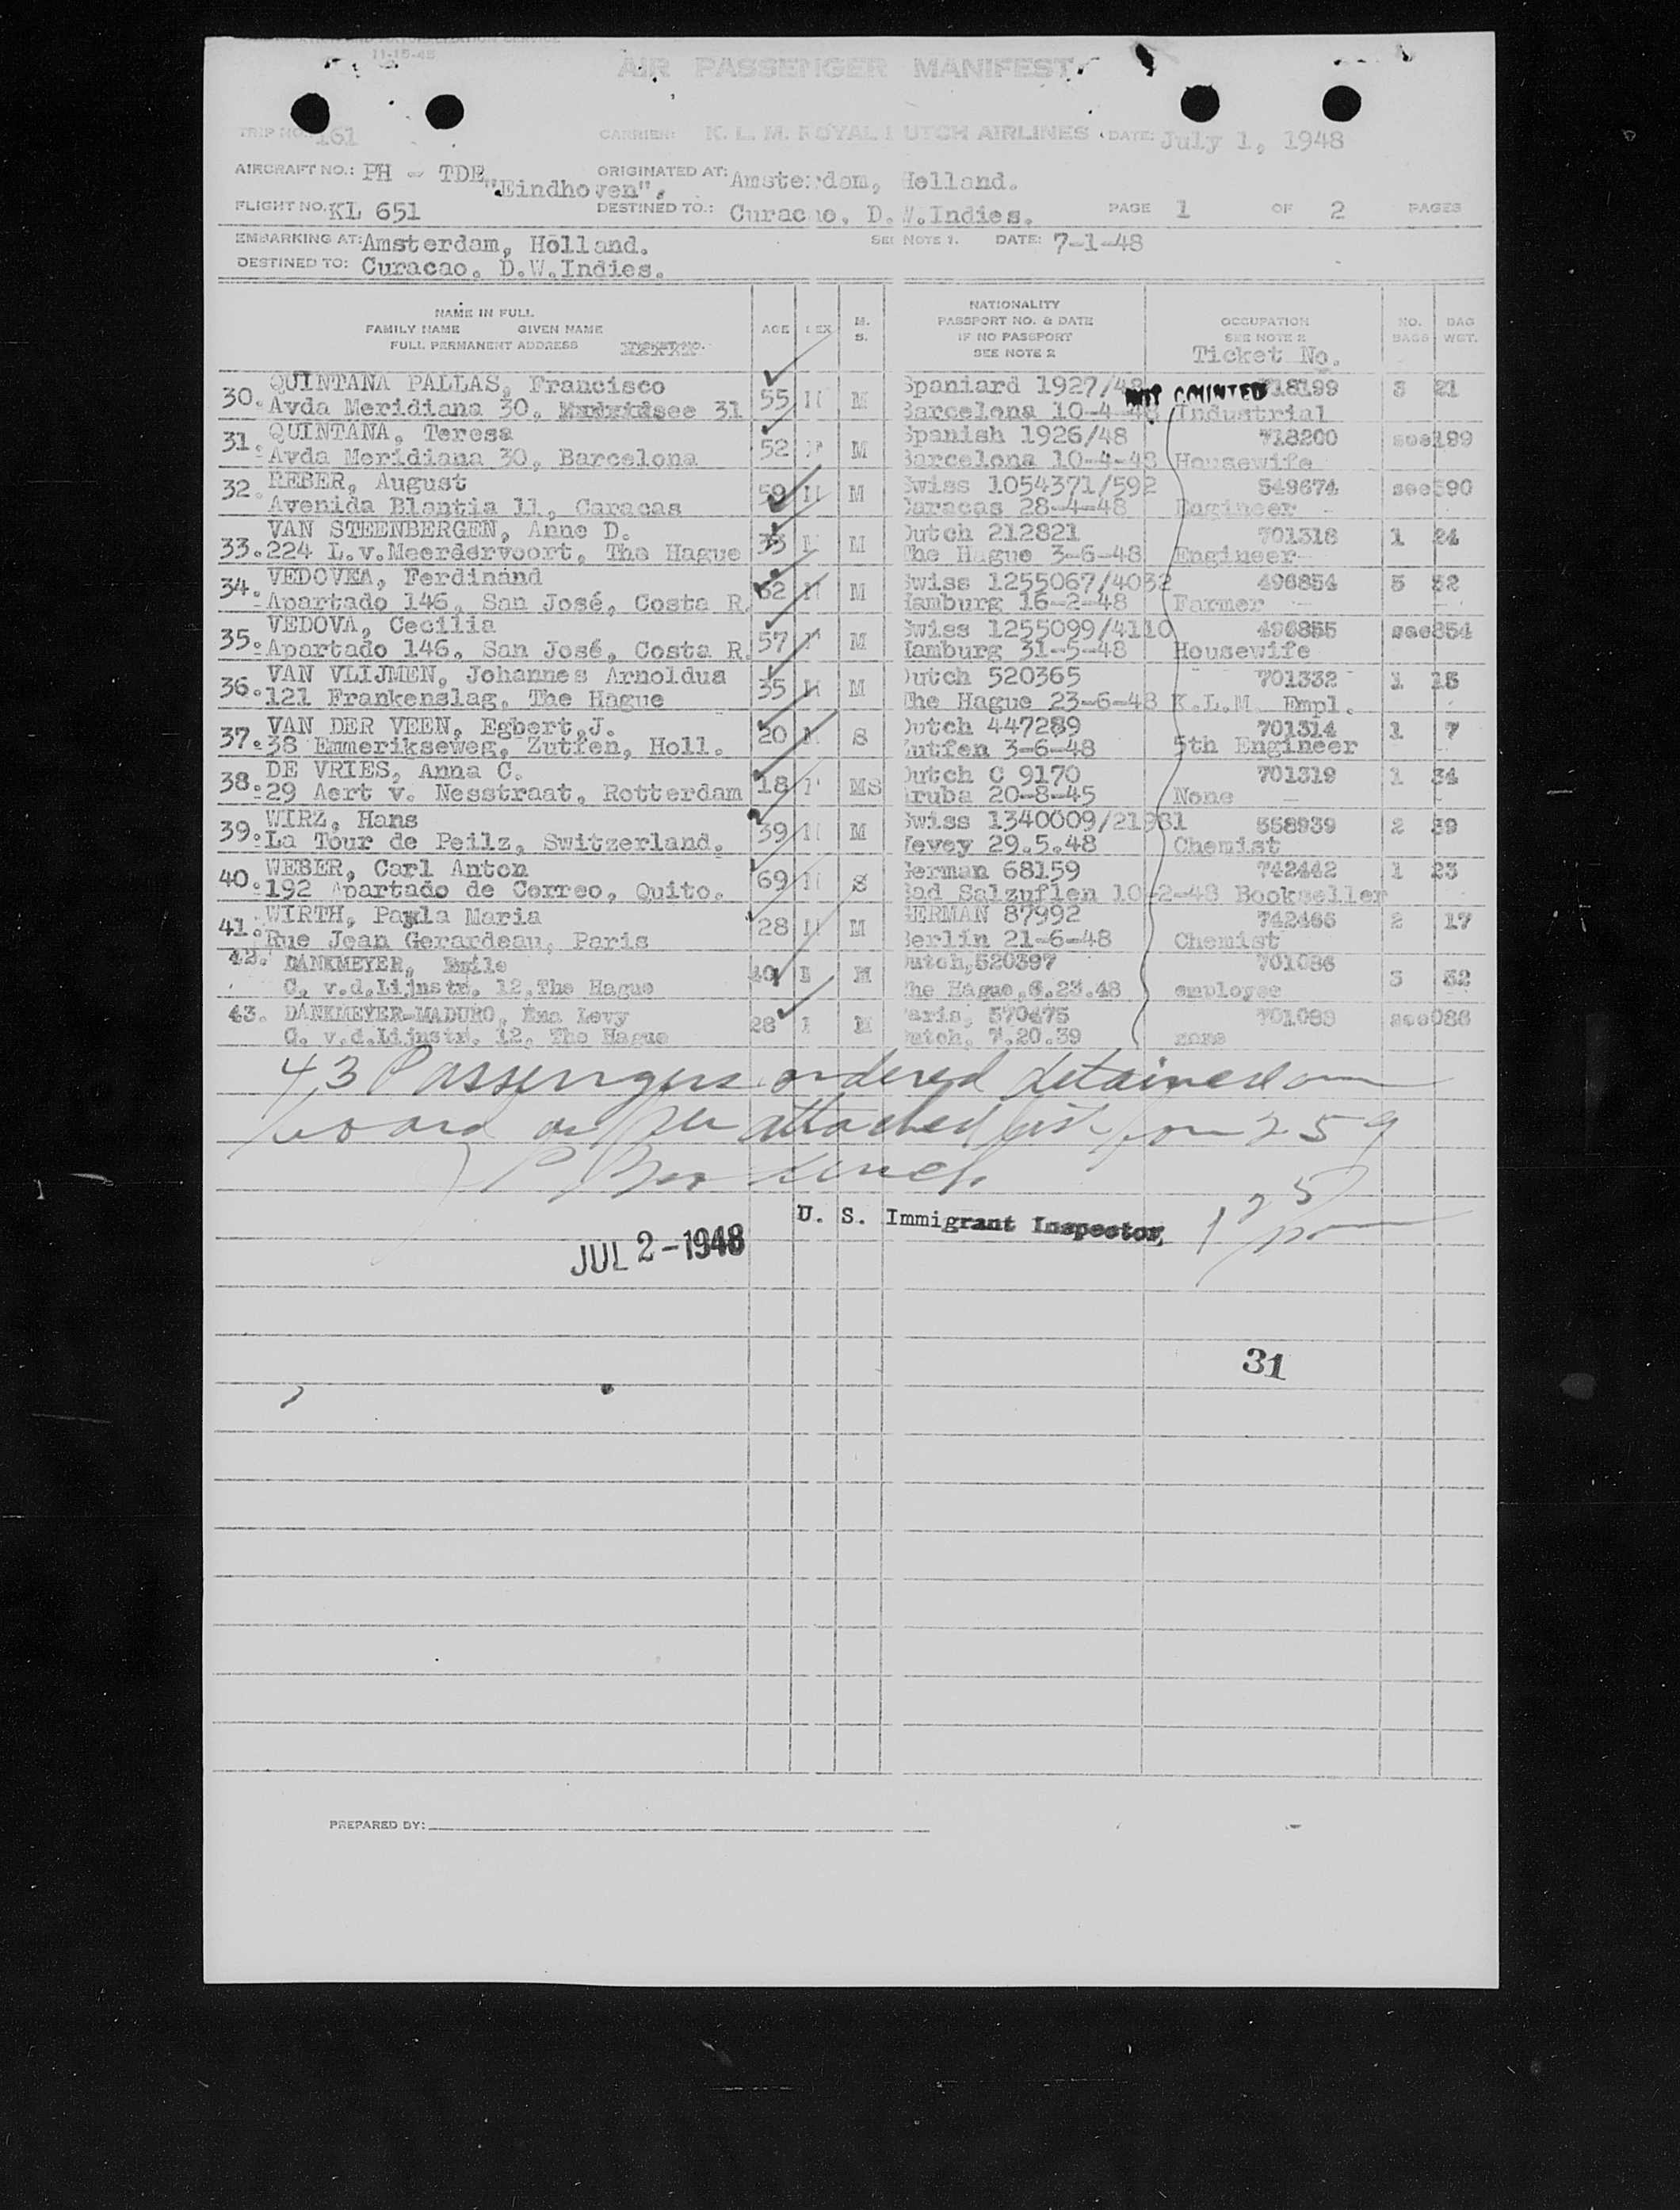 11-15-45
AIR PASSENGER MANIFEST
TRIP NO.: 161 CARRIER: K. L. M. ROYAL DUTCH AIRLINES DATE: July 1, 1948
AIRCRAFT NO.: PH - TDE "Eindhoven", ORIGINATED AT: Amsterdam, Holland.
FLIGHT NO. KL 651 DESTINED TO.: Curacao, D.W.Indies. PAGE 1 OF 2 PAGES
EMBARKING AT: Amsterdam, Holland. SEE NOTE 1. DATE: 7-1-48
DESTINED TO: Curacao, D.W.Indies.
NAME IN FULL
FAMILY NAME GIVEN NAME
FULL PERMANENT ADDRESS
AGE SEX M. S.
NATIONALITY
PASSPORT NO. & DATE
IF NO PASSPORT
SEE NOTE 2
OCCUPATION
SEE NOTE 2
Ticket No.
NO. BAGS
BAG WGT.
30. QUINTANA PALLAS, Francisco 55 M M Spaniard 1927/48 NOT COUNTED 718199 3 21
Avda Meridiana 30, see 31 Barcelona 10-4-48 Industrial
31. QUINTANA, Teresa 52 F M Spanish 1926/48 718200 see199
Avda Meridiana 30, Barcelona Barcelona 10-4-48 Housewife
32. REBER, August 59 M M Swiss 1054371/592 549674 see590
Avenida Blantia 11, Caracas Caracas 28-4-48 Engineer
33. VAN STEENBERGEN, Anne D. 33 M M Dutch 212821 701318 1 24
224 L.v.Meerdervoort, The Hague The Hague 3-6-48 Engineer
34. VEDOVEA, Ferdinand 62 M M Swiss 1255067/4032 496854 5 52
Apartado 146, San José, Costa R. Hamburg 16-2-48 Farmer
35. VEDOVA, Cecilia 57 F M Swiss 1255099/4110 496855 see854
Apartado 146, San José, Costa R. Hamburg 31-5-48 Housewife
36. VAN VLIJMEN, Johannes Arnoldus 35 M M Dutch 520365 701332 1 15
121 Frankenslag, The Hague The Hague 23-6-48 K.L.M. Empl.
37. VAN DER VEEN, Egbert J. 20 M S Dutch 447289 701314 1 7
38 Emmerikseweg, Zutfen, Holl. Zutfen 3-6-48 5th Engineer
38. DE VRIES, Anna C. 18 F MS Dutch C 9170 701319 1 34
29 Aert v. Nesstraat, Rotterdam Aruba 20-8-45 None
39. WIRZ, Hans 39 M M Swiss 1340009/21981 558939 2 39
La Tour de Peilz, Switzerland. Vevey 29.5.48 Chemist
40. WEBER, Carl Anton 69 M S German 68159 742442 1 23
192 Apartado de Correo, Quito. Bad Salzuflen 10-2-48 Bookseller
41. WIRTH, Paula Maria 28 M M GERMAN 87992 742465 2 17
Rue Jean Gerardeau, Paris Berlin 21-6-48 Chemist
42. DANKMEYER, Emile 40 M Dutch,520397 701086 3 52
C. v.d.Lijnstr. 12,The Hague The Hague,6.23.48 employee
43. DANKMEYER-MADURO, Ena Levy 28 M Paris, 570475 701083 see086
C. v.d.Lijnstr. 12, The Hague Dutch, 7.20.39 none
43 Passengers ordered detained on
board as per attached list form 259
U. S. Immigrant Inspector,
JUL 2-1948
31
PREPARED BY: